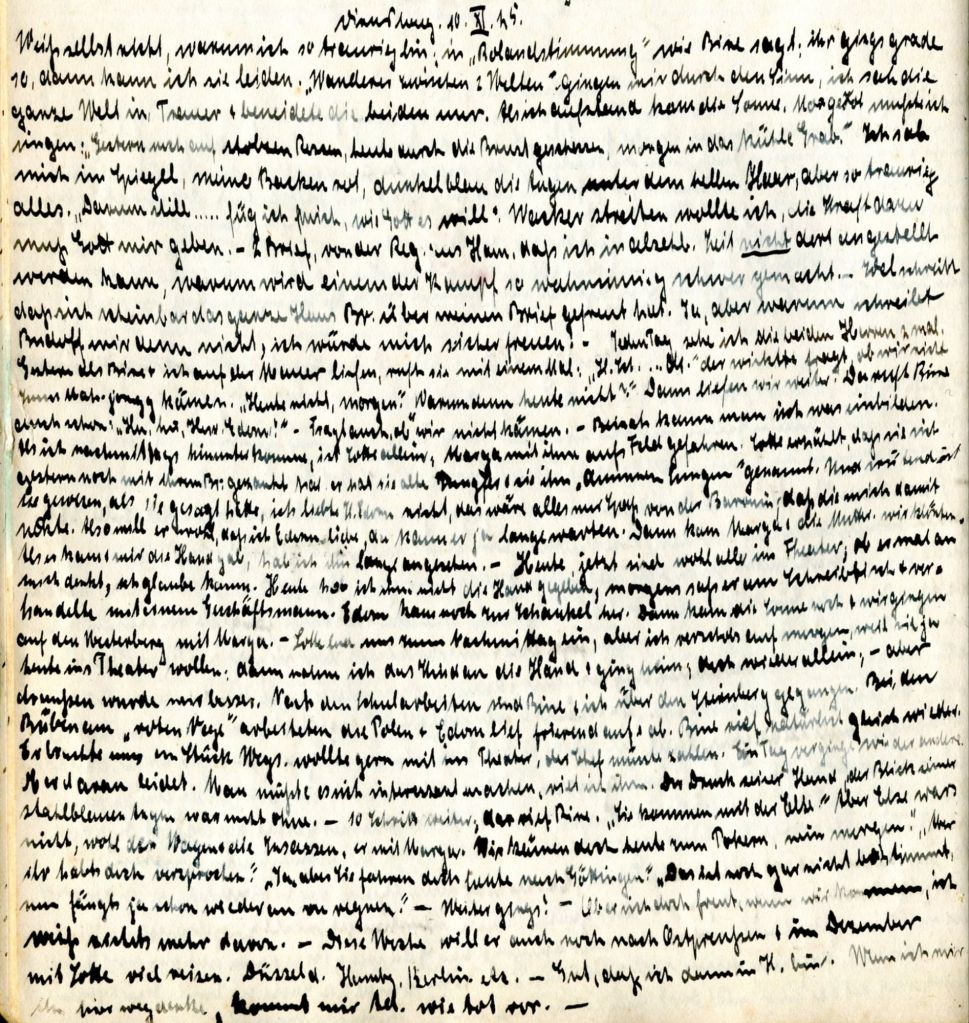 Dienstag. 10. XI. 25.
Weiß selbst nicht, warum ich so traurig bin, in „Rolandstimmung" wie Bine sagt; ihr gings grade
so, dann kann ich sie leiden. „Wanderer zwischen 2 Welten" gingen mir durch den Sinn, ich sah die
ganze Welt in Trauer + beneidete die beiden nur. Als ich aufstand kam die Sonne. Morgenrot mußte ich
singen: „Gestern noch auf stolzen Rossen, heute durch die Brust geschossen, morgen in das kühle Grab." Ich sah
mich im Spiegel, meine Backen rot, dunkelblau die Augen unter dem hellen Haar, aber so traurig
alles. „Darum still ..... füg ich mich, wie Gott es will". Wacker streiten wollte ich, die Kraft dazu
muß Gott mir geben. – 2 Brief, von der Reg. aus Han. daß ich in absehb. Zeit nicht dort angestellt
werden kann, warum wird einem der Kampf so wahnsinnig schwer gemacht. – schreibt
daß sich scheinbar das ganze Haus Br. über meinen Brief gefreut hat. Ja, aber warum schreibt
mir denn nicht, ich würde mich sicher freuen! – Jeden Tag sehe ich die beiden Herren 2 mal.
Gestern als Bine + ich auf der Mauer liefen, ruft sie mit einem Mal: der fragt, ob wir nicht
kämen. „Heute nicht, morgen". Warum denn heute nicht?" Dann liefen wir weiter. Da ruft Bine
auch schon: „Hu, hu, Herr Edom!" – Fragt auch, ob wir nicht kämen. – Beinah kann man sich was einbilden.
Als ich nachmittags hinunter komme, ist Lotte allein, Marga mit ihm aufs Feld gefahren. Lotte erzählt, daß sie sich
gestern noch mit ihrem Br. gezankt hat. er hat sie alte + sie ihn „dummen Jungen" genannt. Und
gewesen, als sie gesagt hätte, ich liebte H. Edom nicht, das wäre alles nur Spaß von der Baronin, daß die mich damit
Also will er daß ich Edom liebe, da kann er ja lange warten. Dann kam Marga + die Mutter.
Als er kam + mir die Hand gab, hab ich ihn lange angesehen. – Heute, jetzt sind wohl alle im Theater, ob er mal an
mich denkt, ich glaube kaum. Heute hab ich ihm nicht die Hand gegeben, morgens saß er am Schreibtisch + ver-
handelte mit einem Geschäftsmann. Edom kam noch zur Schaukel her. Dann kam die Sonne noch + wir gingen
auf den Westerberg mit Marga. – Lotte lud uns zum Nachmittag ein, aber ich verschob auf morgen, weil sie ja
heute ins Theater wollen; dann nahm ich das Kind an die Hand + ging heim; doch wieder allein; – aber
draußen wurde mir besser. Nach den Schularbeiten sind Bine + ich über den Steinberg gegangen. Bei den
Rüben am „roten Wege" arbeiteten die Polen + Edom lief frierend auf + ab. Bine rief natürlich gleich wieder.
Er brachte uns ein Stück Wegs. wollte gern mit ins Theater, der Chef müsste zahlen. Ein Tag verginge wie der andere.
Man müßte es sich interessant machen, riet ich ihm. Der Druck seiner Hand, der Blick seiner
stahlblauen Augen war nicht ohne. – 10 Schritt weiter, da rief Bine. „Sie kommen mit der Elite" Aber Elite wars
nicht, wohl des Wagens alte Insassen, er mit Marga. Wir kämen doch heute zum Pokern, nein morgen". „Aber
ihr habts doch versprochen" „Ja, aber Sie fahren doch heute nach Göttingen" „Das ist noch gar nicht bestimmt,
nun fängts ja schon wieder an zu regnen." – Weiter gings! – Ob er sich doch freut, wenn wir kommen, ich
weiß nichts mehr davon. – Diese Woche will er auch noch nach Ostpreußen + im Dezember
mit Lotte viel reisen. Düsseld. Hambg. Berlin etc. – Gut, daß ich dann in H. bin. Wenn ich mir
ihn hier wegdenke, kommt mir wie tot vor. –